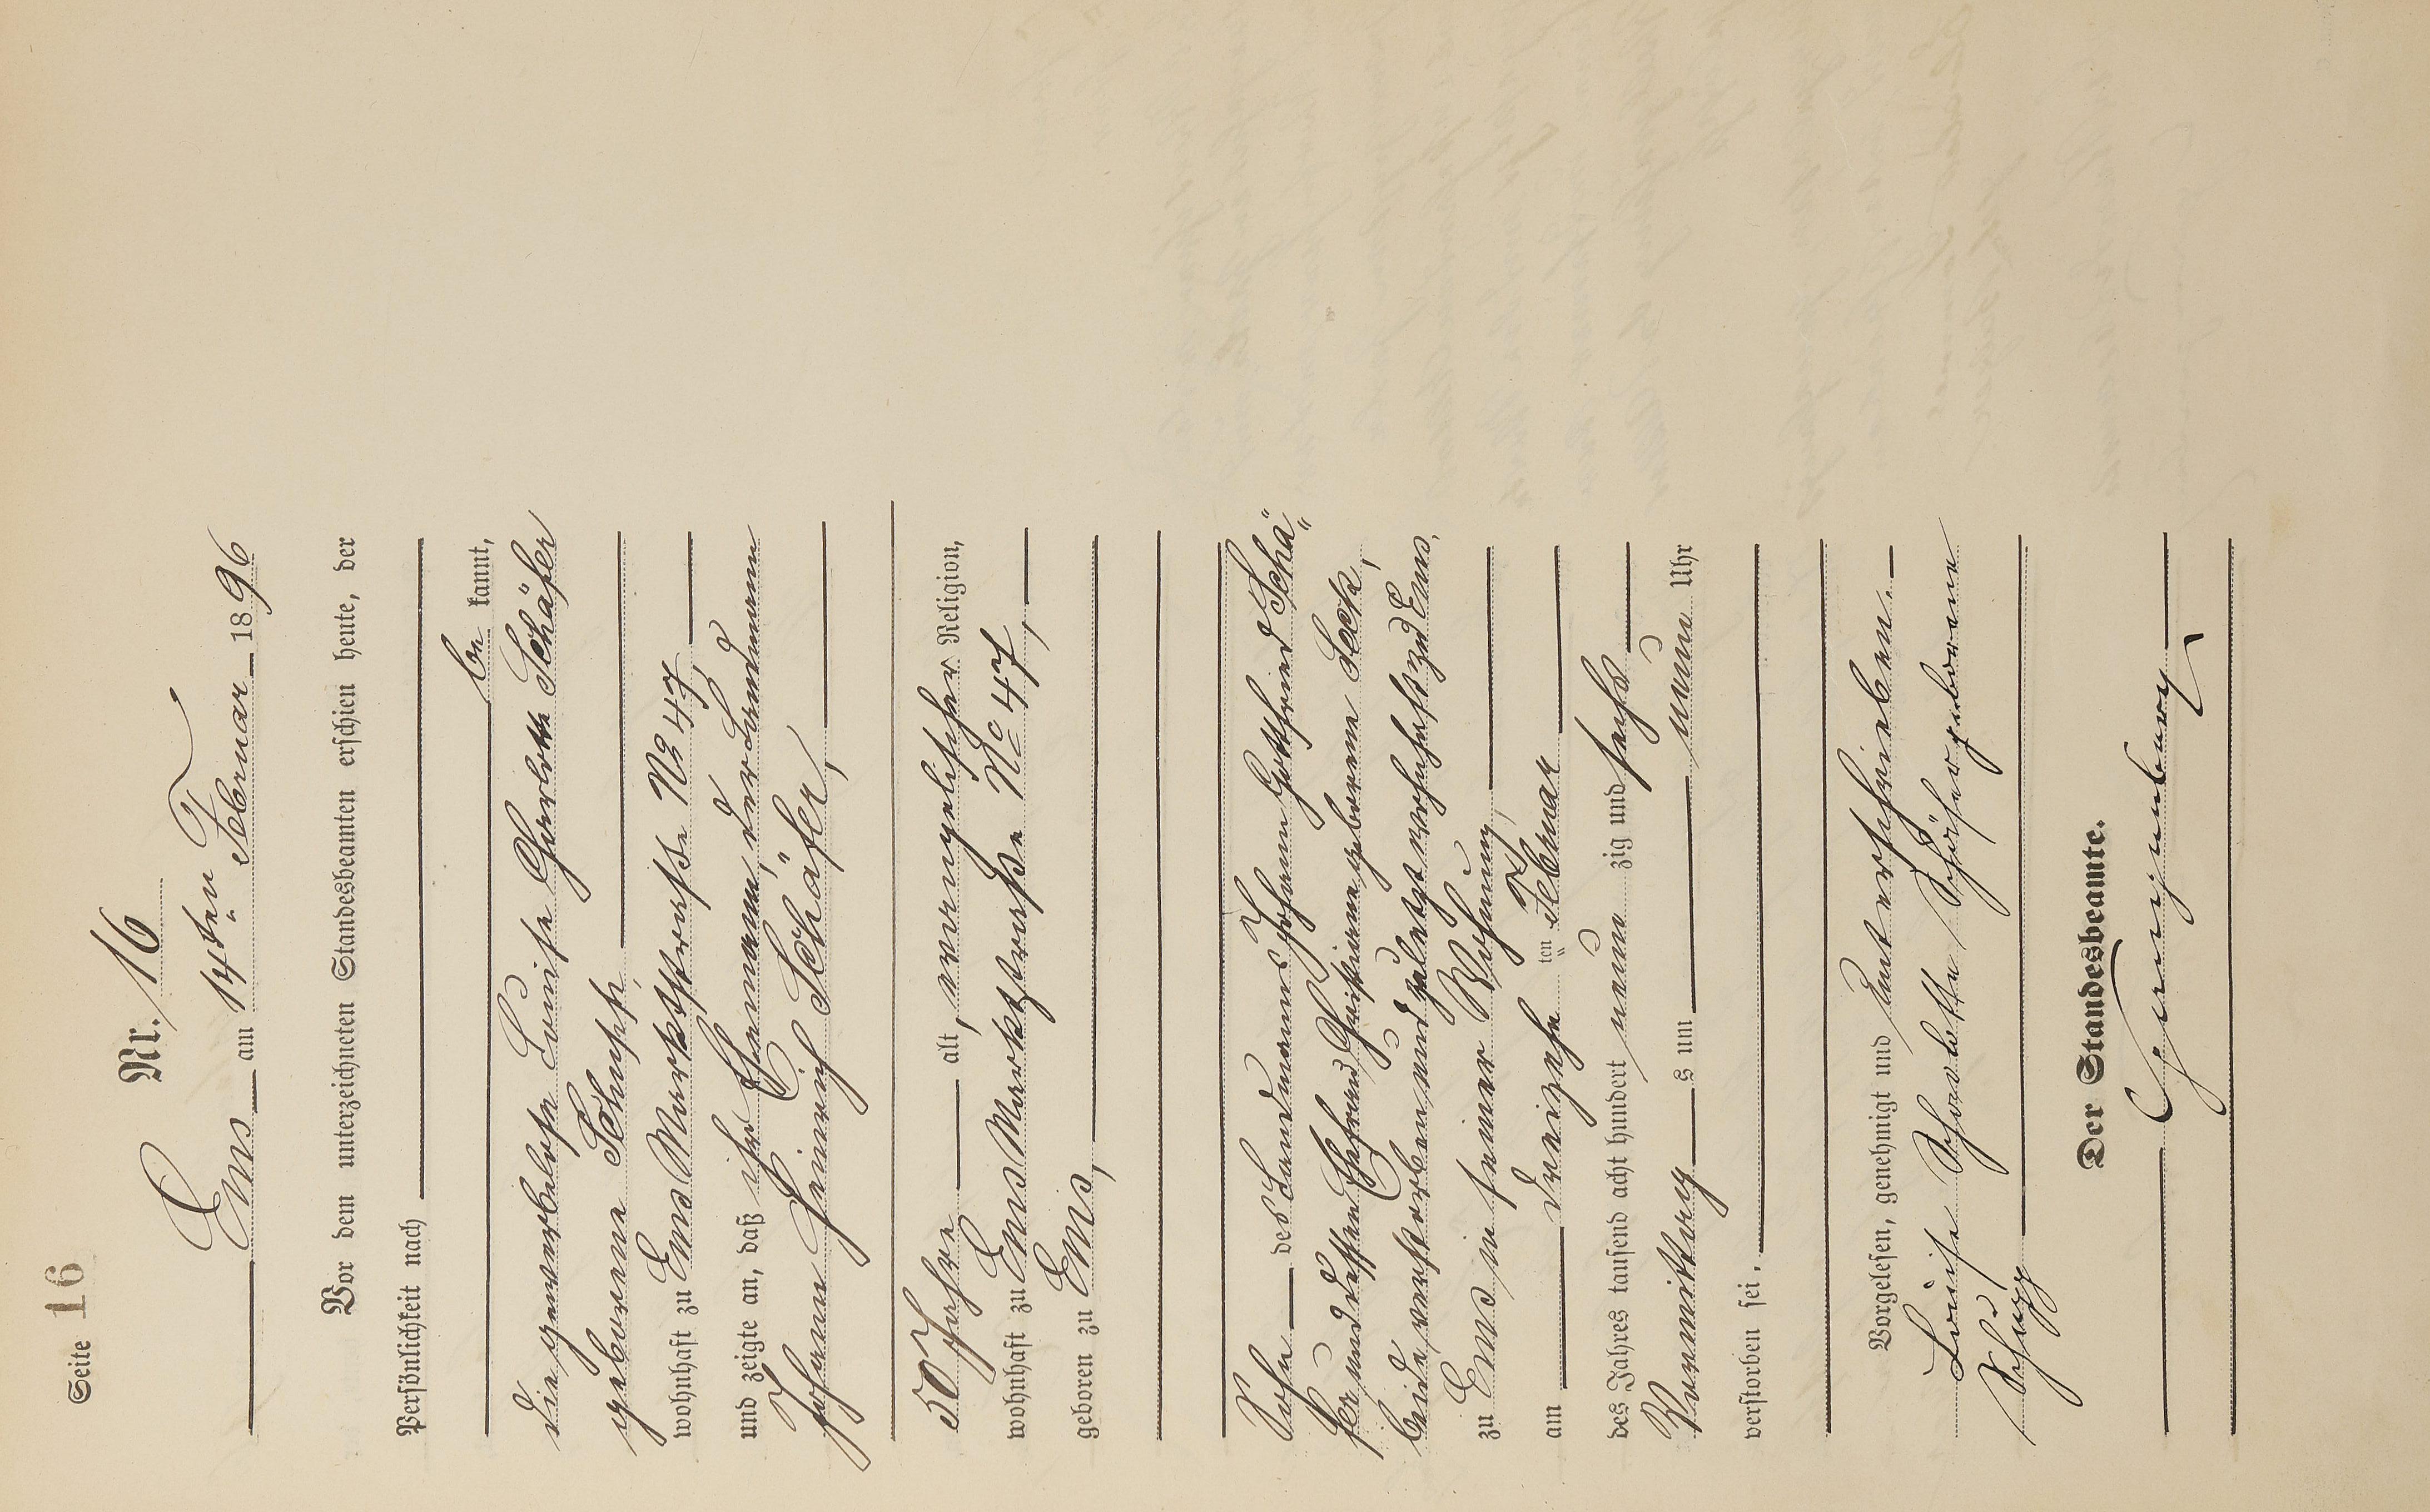 Seite 16
Nr. 16
Ems am 14ten Februar 1896
Vor dem unterzeichneten Standesbeamten erschien heute, der
Persönlichkeit nach
be kannt,
die gewerbelose Louise Charlotte Schäfer
geborene Schupp,
wohnhaft zu Ems Marktstraße No 47,
und zeigte an, daß ihr Ehemann, der Landmann
Johann Heinrich Schäfer,
50 Jahre alt, evangelischer Religion,
wohnhaft zu Ems Marktstraße No 47,
geboren zu Ems,
Sohn des Landmanns Johann Gottfried Schä"
fer und dessen Ehefrau Christiane geborene Beck,
beide verstorben und zuletzt wohnhaft zu Ems,
zu Ems in seiner Wohnung,
am dreizehn ten Februar
des Jahres tausend acht hundert neun zig und sechs
Vormittag s um neun Uhr
verstorben sei.
Vorgelesen, genehmigt und unterschrieben.
Louise Scharlotte Schäfer geborene
Schupp
Der Standesbeamte.